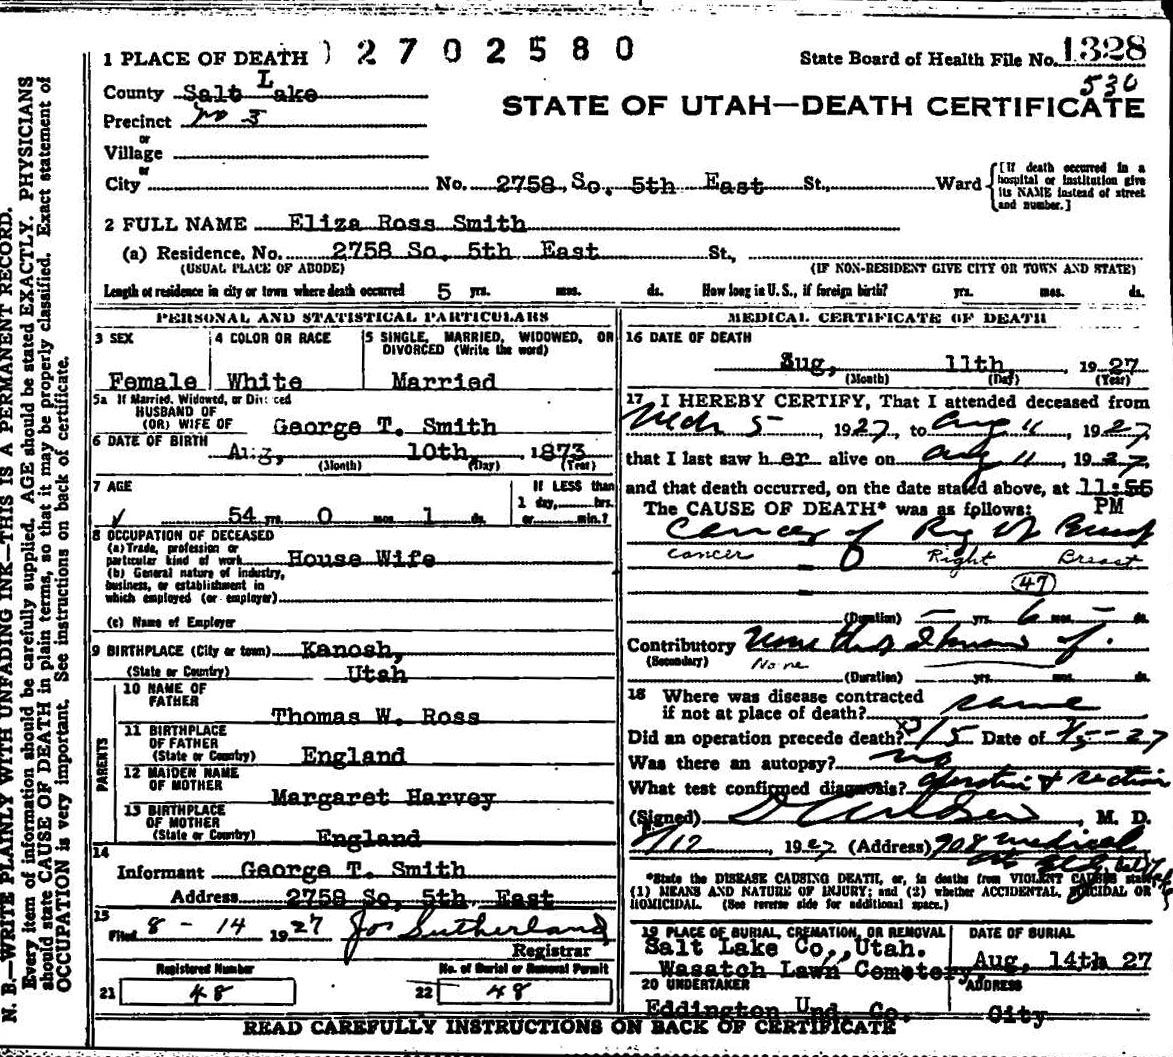 N. B.—WRITE PLAINLY WITH UNFADING INK—THIS IS A PERMANENT RECORD.
Every item of information should be carefully supplied. AGE should be stated EXACTLY. PHYSICIANS
should state CAUSE OF DEATH in plain terms, so that it may be properly classified. Exact statement of
OCCUPATION is very important. See instructions on back of certificate.
1 PLACE OF DEATH ) 2702580
State Board of Health File No. 1328
530
County Salt Lake
STATE OF UTAH—DEATH CERTIFICATE
Precinct No 3
or
Village
or
City No. 2758 So. 5th East St., Ward
[If death occurred in a
hospital or institution give
its NAME instead of street
and number.]
2 FULL NAME Eliza Ross Smith
(a) Residence. No. 2758 So. 5th East St.,
(USUAL PLACE OF ABODE) (IF NON-RESIDENT GIVE CITY OR TOWN AND STATE)
Length of residence in city or town where death occurred 5 yrs. mos. ds. How long in U. S., if foreign birth? yrs. mos. ds.
PERSONAL AND STATISTICAL PARTICULARS
3 SEX 4 COLOR OR RACE 5 SINGLE, MARRIED, WIDOWED, OR
DIVORCED (Write the word)
Female White Married
5a If Married, Widowed, or Divorced
HUSBAND OF
(OR) WIFE OF George T. Smith
6 DATE OF BIRTH Aug, 10th, 1873
(Month) (Day) (Year)
7 AGE If LESS than
1 day, hrs.
54 yrs. 0 mos. 1 ds. or min.?
8 OCCUPATION OF DECEASED
(a) Trade, profession or
particular kind of work House Wife
(b) General nature of industry,
business, or establishment in
which employed (or employer)
(c) Name of Employer
9 BIRTHPLACE (City or town) Kanosh,
(State or Country) Utah
PARENTS
10 NAME OF
FATHER
Thomas W. Ross
11 BIRTHPLACE
OF FATHER
(State or Country) England
12 MAIDEN NAME
OF MOTHER
Margaret Harvey
13 BIRTHPLACE
OF MOTHER
(State or Country) England
14
Informant George T. Smith
Address 2758 So, 5th East
15
Filed 8 - 14 1927 Jos Sutherland
Registrar
Registered Number No. of Burial or Removal Permit
21 48 22 48
MEDICAL CERTIFICATE OF DEATH
16 DATE OF DEATH
Aug, 11th, 1927
(Month) (Day) (Year)
17 I HEREBY CERTIFY, That I attended deceased from
5 1927, to Aug 11, 1927
that I last saw her alive on Aug 11, 1927,
and that death occurred, on the date stated above, at 11:55
PM
The CAUSE OF DEATH* was as follows:
Cancer of Right Breast
cancer Right Breast
47
(Duration) – yrs. 6 mos – ds.
Contributory None that I know of.
(Secondary) None
(Duration) yrs. mos. ds.
18 Where was disease contracted
if not at place of death? same
Did an operation precede death? Date of
Was there an autopsy? no
What test confirmed diagnosis? operation & section
(Signed) , M. D.
8/12, 1927 (Address) 708 medical
*State the DISEASE CAUSING DEATH, or, in deaths from VIOLENT CAUSES state
(1) MEANS AND NATURE OF INJURY; and (2) whether ACCIDENTAL, SUICIDAL OR
HOMICIDAL. (See reverse side for additional space.)
19 PLACE OF BURIAL, CREMATION, OR REMOVAL DATE OF BURIAL
Salt Lake Co,, Utah.
Wasatch Lawn Cemetery Aug, 14th 27
20 UNDERTAKER ADDRESS
Eddington Und. Co. City
READ CAREFULLY INSTRUCTIONS ON BACK OF CERTIFICATE